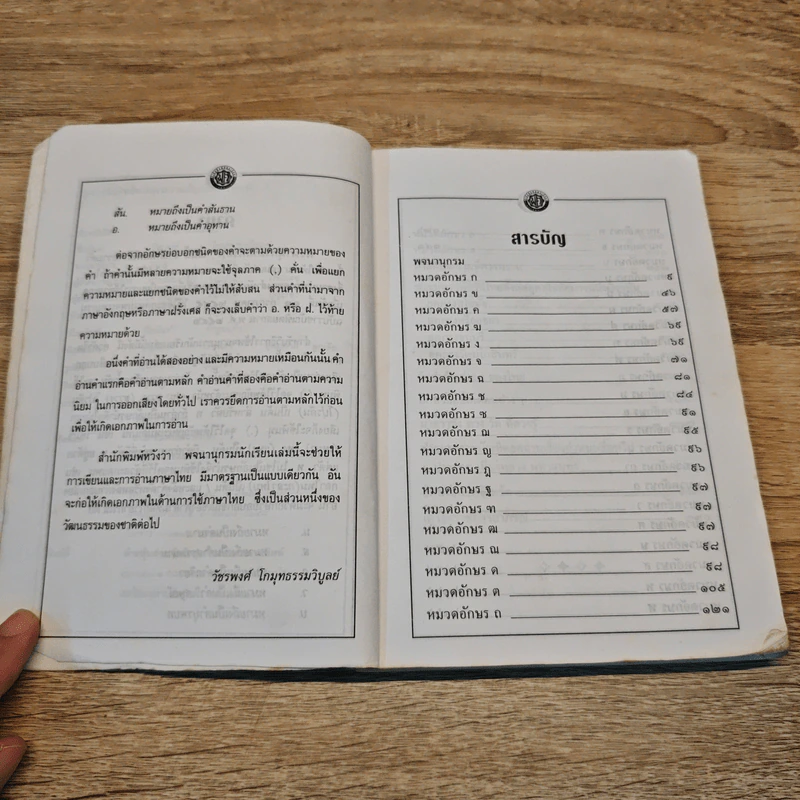 สัน. หมายถึงเป็นคำสันธาน
อ. หมายถึงเป็นคำอุทาน
ต่อจากอักษรย่อบอกชนิดของคำจะตามด้วยความหมายของ
คำ ถ้าคำนั้นมีหลายความหมายจะใช้จุลภาค (,) คั่น เพื่อแยก
ความหมายและแยกชนิดของคำไว้ไม่ให้สับสน ส่วนคำที่นำมาจาก
ภาษาอังกฤษหรือภาษาฝรั่งเศส ก็จะวงเล็บคำว่า อ. หรือ ฝ. ไว้ท้าย
ความหมายด้วย
อนึ่งคำที่อ่านได้สองอย่าง และมีความหมายเหมือนกันนั้น คำ
อ่านคำแรกคือคำอ่านตามหลัก คำอ่านคำที่สองคือคำอ่านตามความ
นิยม ในการออกเสียงโดยทั่วไป เราควรยึดการอ่านตามหลักไว้ก่อน
เพื่อให้เกิดเอกภาพในการอ่าน
สำนักพิมพ์หวังว่า พจนานุกรมนักเรียนเล่มนี้จะช่วยให้
การเขียนและการอ่านภาษาไทย มีมาตรฐานเป็นแบบเดียวกัน อัน
จะก่อให้เกิดเอกภาพในด้านการใช้ภาษาไทย ซึ่งเป็นส่วนหนึ่งของ
วัฒนธรรมของชาติต่อไป
วัชรพงศ์ โกมุทธรรมวิบูลย์
สารบัญ
พจนานุกรม
หมวดอักษร ก ๙
หมวดอักษร ข ๔๖
หมวดอักษร ค ๕๗
หมวดอักษร ฆ ๖๙
หมวดอักษร ง ๖๙
หมวดอักษร จ ๗๑
หมวดอักษร ฉ ๘๑
หมวดอักษร ช ๘๔
หมวดอักษร ซ ๙๑
หมวดอักษร ฌ ๙๕
หมวดอักษร ญ ๙๖
หมวดอักษร ฎ ๙๖
หมวดอักษร ฐ ๙๗
หมวดอักษร ฑ ๙๗
หมวดอักษร ฒ ๙๗
หมวดอักษร ณ ๙๘
หมวดอักษร ด ๙๘
หมวดอักษร ต ๑๐๕
หมวดอักษร ถ ๑๒๑